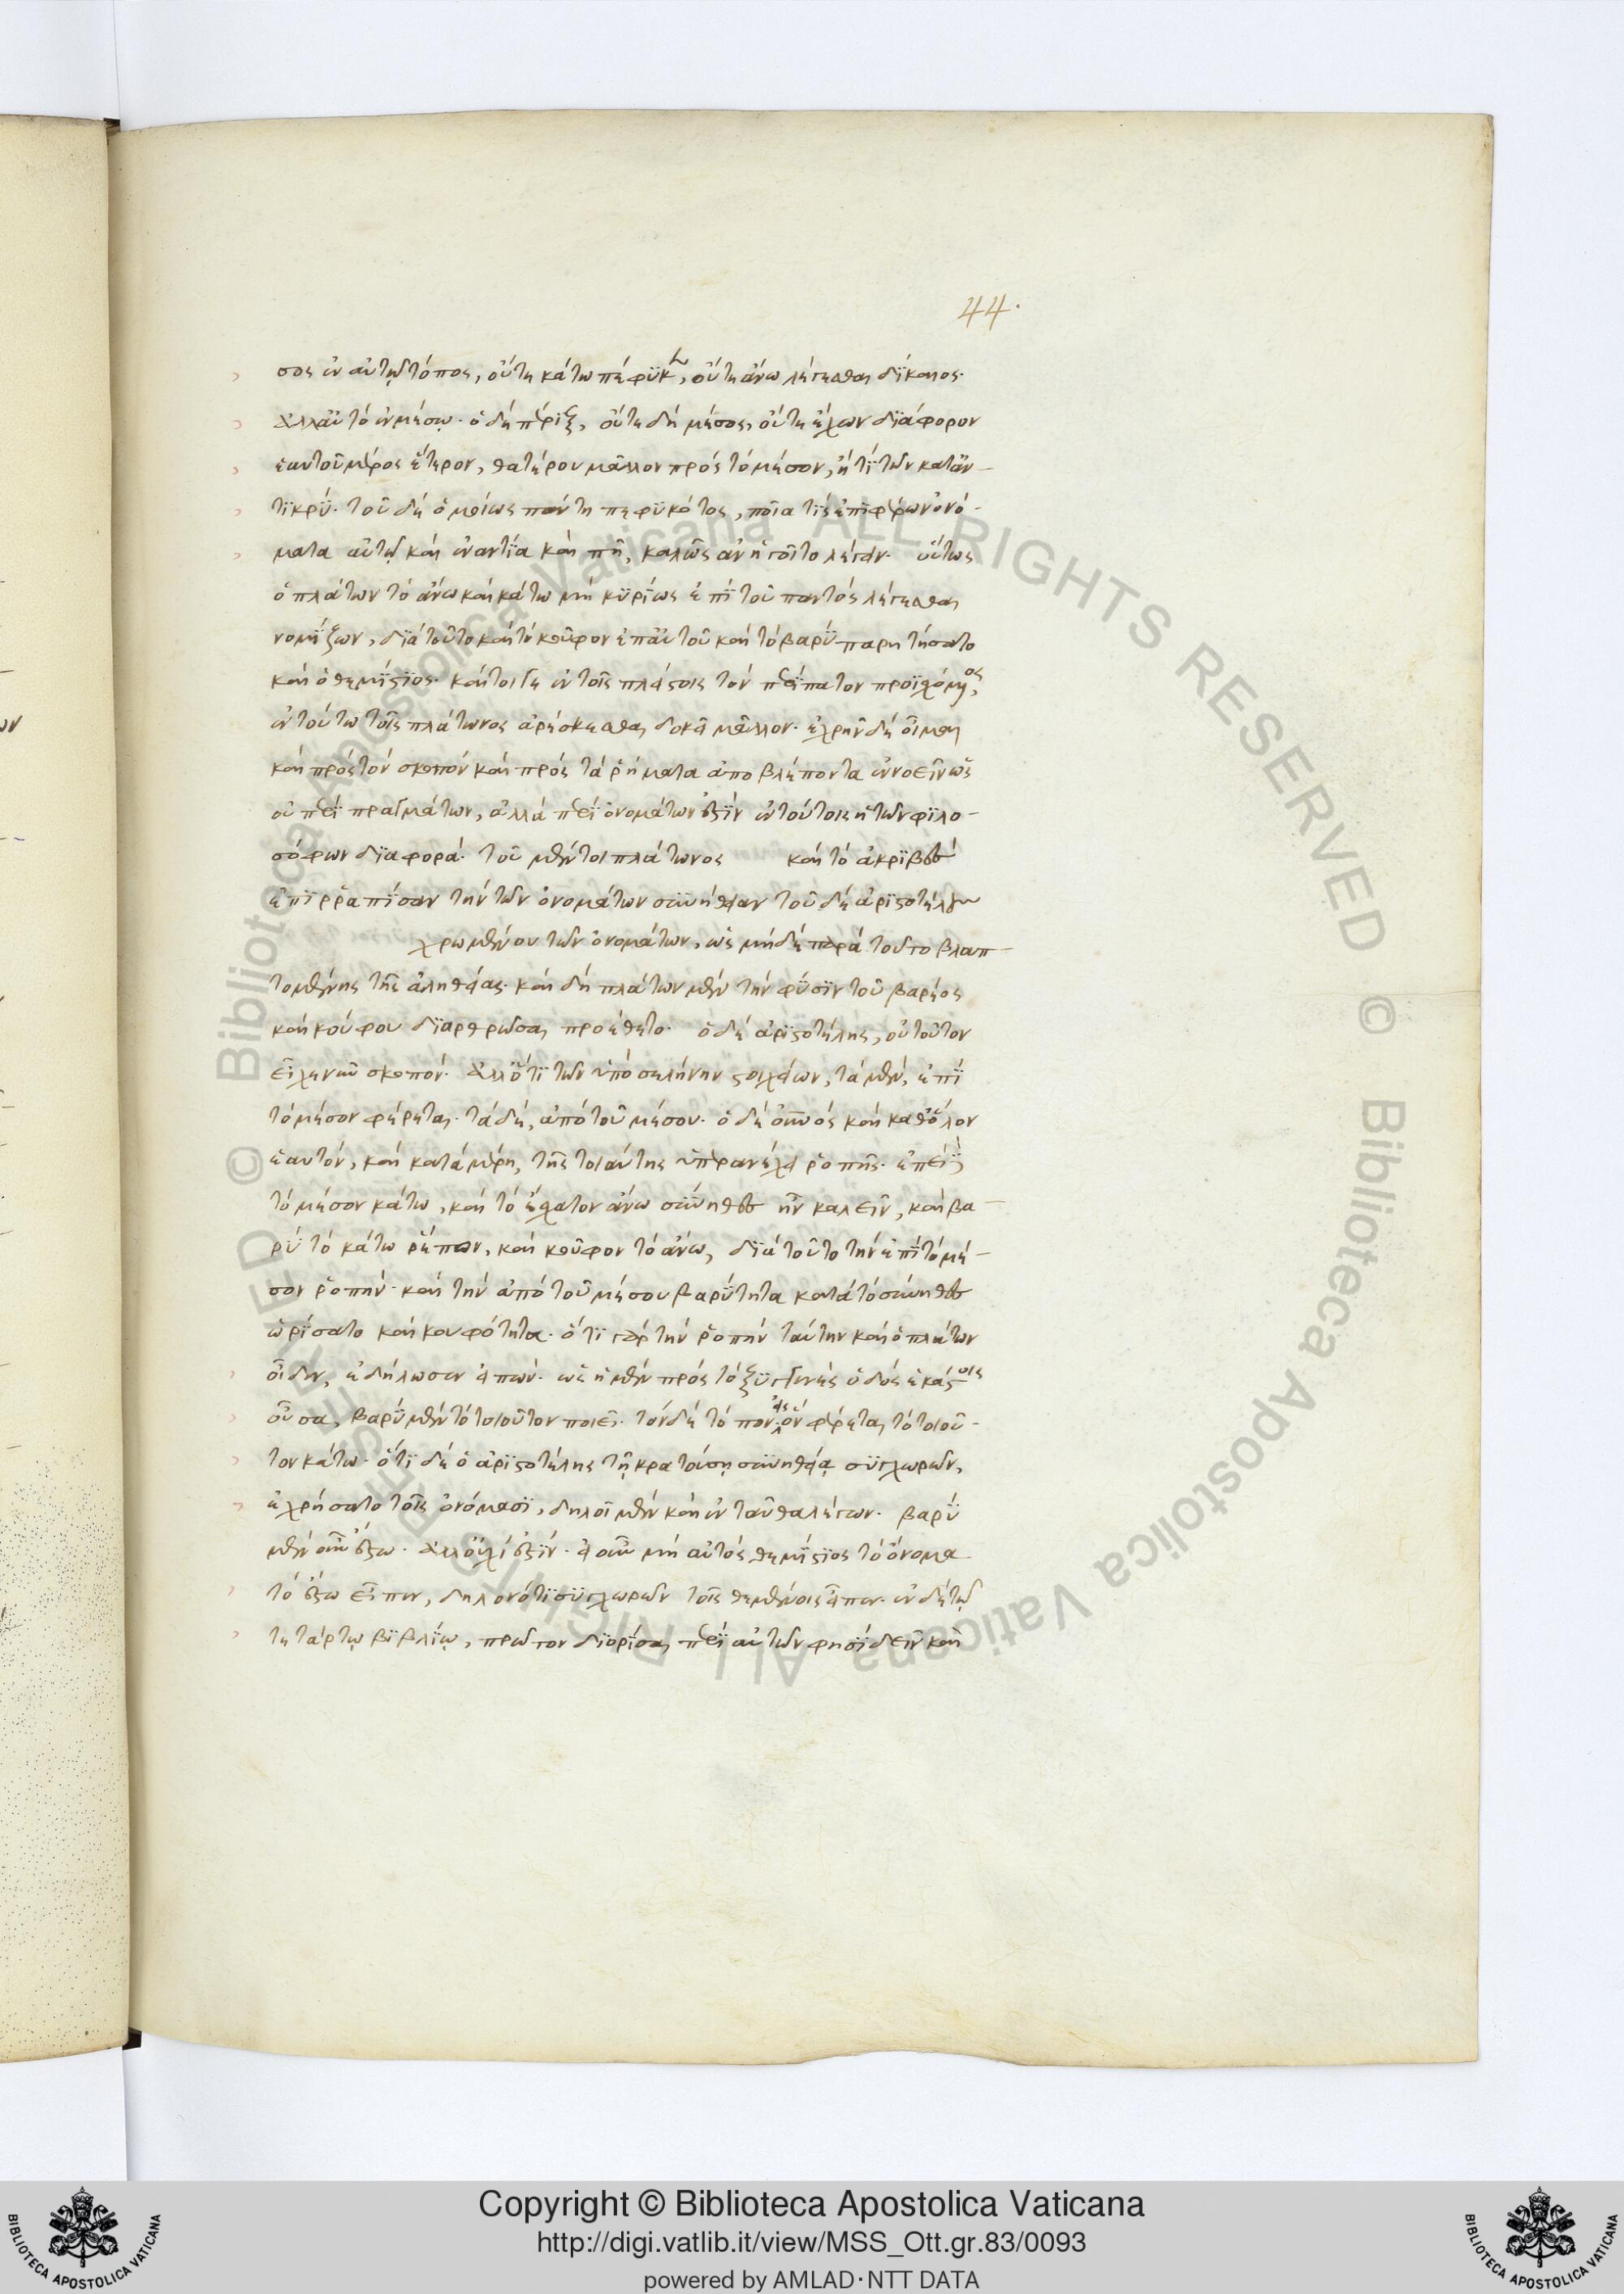 44.
σος ἐν αὐτῷ τόπος, οὔτε κάτω πέφυκεν, οὔτε ἄνω λέγεσθαι δίκαιος.
ἀλλ' αὐτὸ ἐν μέσῳ. ὁ δὲ πέριξ, οὔτε δὴ μέσος, οὔτε ἔχων διάφορον
ἑαυτοῦ μέρος ἕτερον, θατέρου μᾶλλον πρὸς τὸ μέσον, ἤ τι τῶν καταν-
τικρύ. τοῦ δὲ ὁμοίως πάντη πεφυκότος, ποῖα τὶς ἐπιφέρων ὀνό-
ματα αὐτῷ καὶ ἐναντία καὶ πῇ, καλῶς ἂν ἡγοῖτο λέγειν. οὕτως
ὁ πλάτων τὸ ἄνω καὶ κάτω μὴ κυρίως ἐπὶ τοῦ παντὸς λέγεσθαι
νομίζων, διὰ τοῦτο καὶ τὸ κοῦφον ἐπ' αὐτοῦ καὶ τὸ βαρὺ παρῃτήσατο
καὶ ὁ θεμίστιος. καίτοιγε ἐν τοῖς πλείστοις τὸν περίπατον προϊσχόμενος,
ἐν τούτω τοῖς πλάτωνος ἀρέσκεσθαι δοκεῖ μᾶλλον. ἐχρῆν δὲ οἶμαι
καὶ πρὸς τὸν σκοπὸν καὶ πρὸς τὰ ῥήματα ἀποβλέποντα ἐννοεῖν ὡς
οὐ περὶ πραγμάτων, ἀλλὰ περὶ ὀνομάτων ἐστὶν ἐν τούτοις ἡ τῶν φιλο-
σόφων διαφορά. τοῦ μέντοι πλάτωνος καὶ τὸ ἀκριβὲς
ἐπιρραπίσαν τὴν τῶν ὀνομάτων συνήθειαν τοῦ δὲ ἀριστοτέλους
χρωμένου τῶν ὀνομάτων, ὡς μηδὲ παρὰ τοῦτο βλαπ-
τομένης τῆς ἀληθείας. καὶ δὴ πλάτων μὲν τὴν φύσιν τοῦ βαρέος
καὶ κούφου διαρθρῶσαι προέθετο. ὁ δὲ ἀριστοτέλης, οὐ τοῦτον
εἶχε νῦν σκοπόν. ἀλλ' ὅτι τῶν ὑπὸ σελήνην στοιχείων, τὰ μὲν, ἐπὶ
τὸ μέσον φέρεται. τὰ δὲ, ἀπὸ τοῦ μέσου. ὁ δὲ οὐνος καὶ καθ' ὅλον
ἑαυτὸν, καὶ κατὰ μέρη, τῆς τοιαύτης ὑπερανέχει ῥοπῆς. ἐπεὶ δὲ
τὸ μέσον κάτω, καὶ τὸ ἔσχατον ἄνω σύνηθες ἦν καλεῖν, καὶ βα-
ρὺ τὸ κάτω ῥέπον, καὶ κοῦφον τὸ ἄνω, διὰ τοῦτο τὴν ἐπὶ τὸ μέ-
σον ῥοπήν. καὶ τὴν ἀπὸ τοῦ μέσου βαρύτητα κατὰ τὸ σύνηθες
ὡρίσατο καὶ κουφότητα. ὅτι γὰρ τὴν ῥοπὴν ταύτην καὶ ὁ πλάτων
οἶδεν, ἐδήλωσεν εἰπών. ὡς ἡ μὲν πρὸς τὸ ξυγγενὲς ὁδὸς ἑκάστοις
οὖσα, βαρὺ μὲν τὸ τοιοῦτον ποιεῖ. τὸν δὲ τόπον εἰς ὃν φέρεται τὸ τοιοῦ-
τον κάτω. ὅτι δὲ ὁ ἀριστοτέλης τῇ κρατούσῃ συνηθείᾳ συγχωρῶν,
ἐχρήσατο τοῖς ὀνόμασι, δηλοῖ μὲν καὶ ἐνταῦθα λέγων. βαρὺ
μὲν οὖν ἔστω. ἀλλ' οὐχί ἐστιν. εἰ οὖν μὴ αὐτὸς θεμίστιος τὸ ὄνομα
τὸ ἔστω εἶπεν, δηλονότι συγχωρῶν τοῖς θεμένοις εἶπεν. ἐν δὲ τῷ
τετάρτῳ βιβλίῳ, πρῶτον διορίσαι περὶ αὐτῶν φησὶ δεῖν καὶ